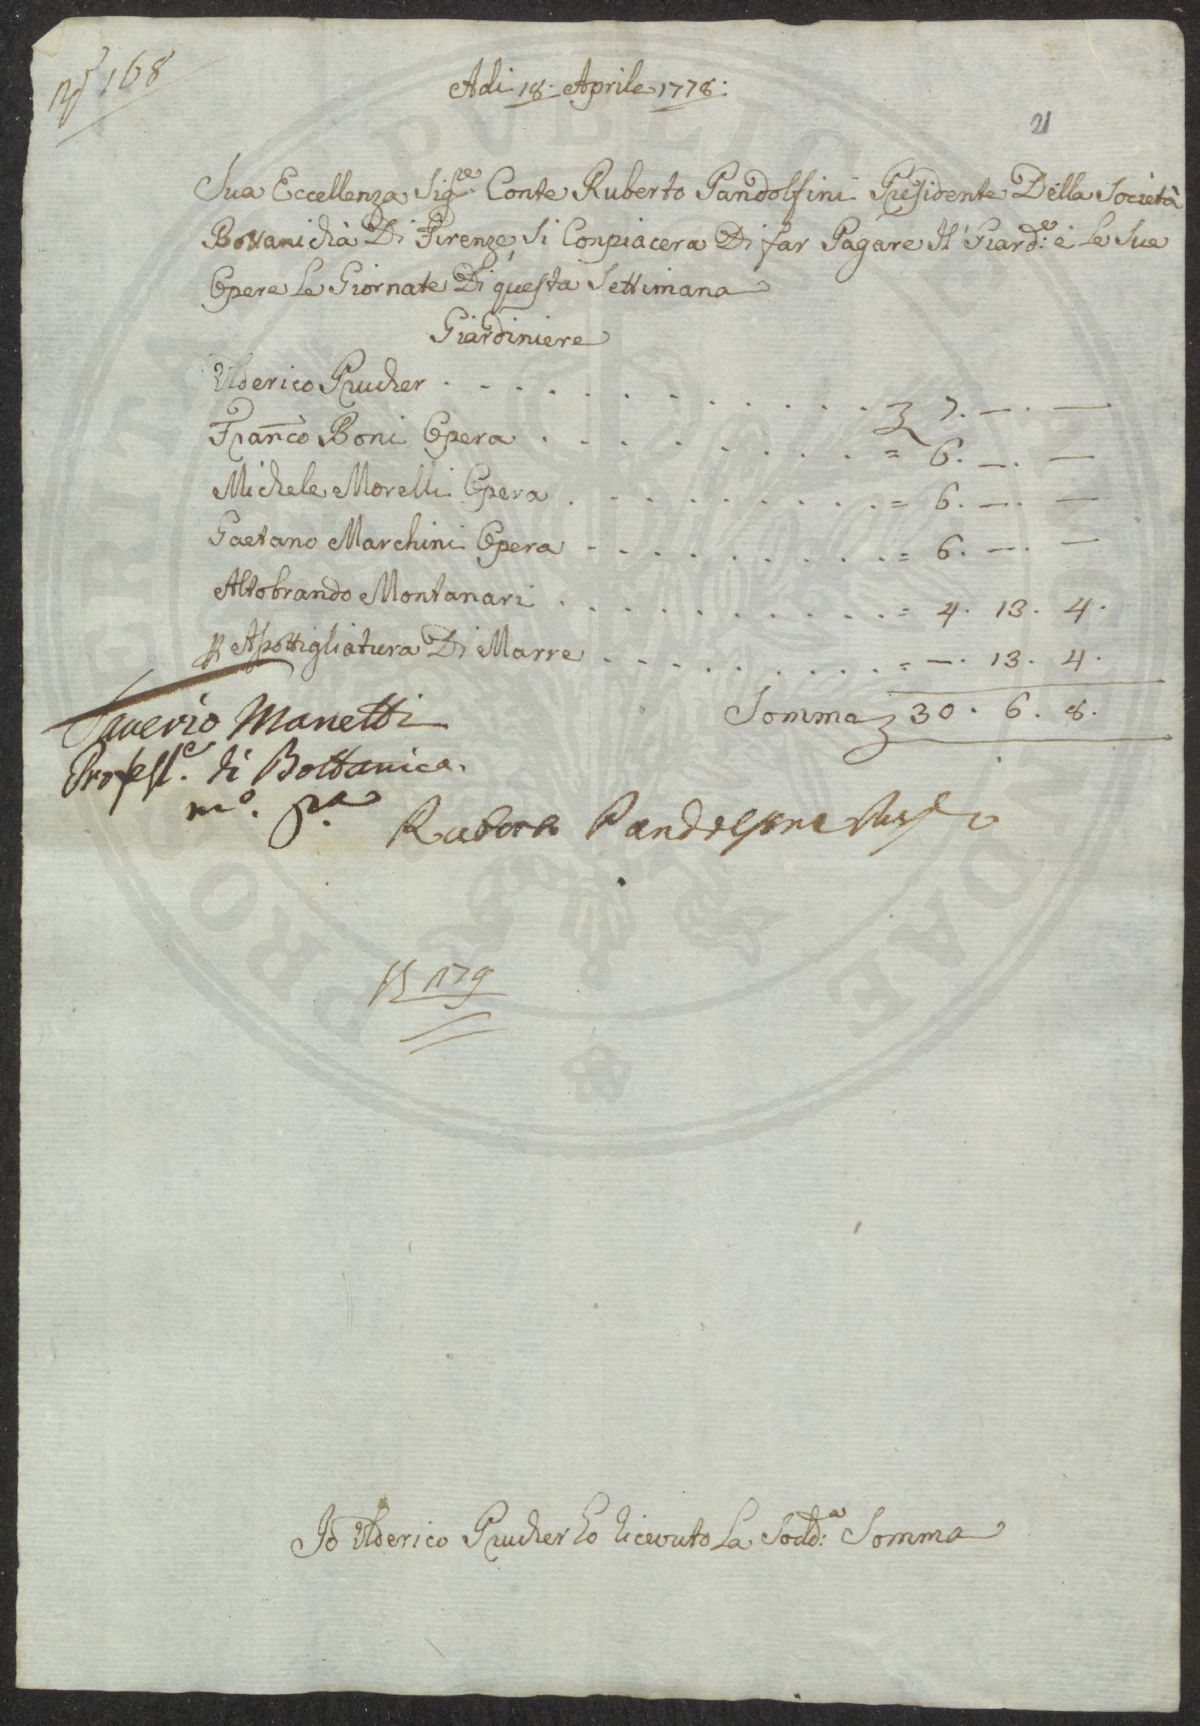 N° 168
Adi 18. Aprile 1778:
21
Sua Eccellenza Sig.re Conte Ruberto Pandolfini Presidente Della Società
Bottanicha Di Firenze, Si Conpiacera Di far Pagare Il Giard:e e Le Sue
Opere Le Giornate Di questa Settimana
Giardiniere
Ulderico Prucher . . . . . . . . . . £ 7. —. —
Franco Boni Opera . . . . . . . = 6. —. —
Michele Morelli Opera . . . . . . . = 6. —. —
Gaetano Marchini Opera . . . . . . . = 6. —. —
Altobrando Montanari . . . . . . . = 4. 13. 4.
Apottigliatura Di Marre . . . . . . . = —. 13. 4.
Somma £ 30. 6. 8.
Saverio Manetti
Profess.e di Bottanica.
m.o p.a
Ruberto Pandolfini
179
Io Ulderico Prucher ho ricevuto La Sodd:a Somma